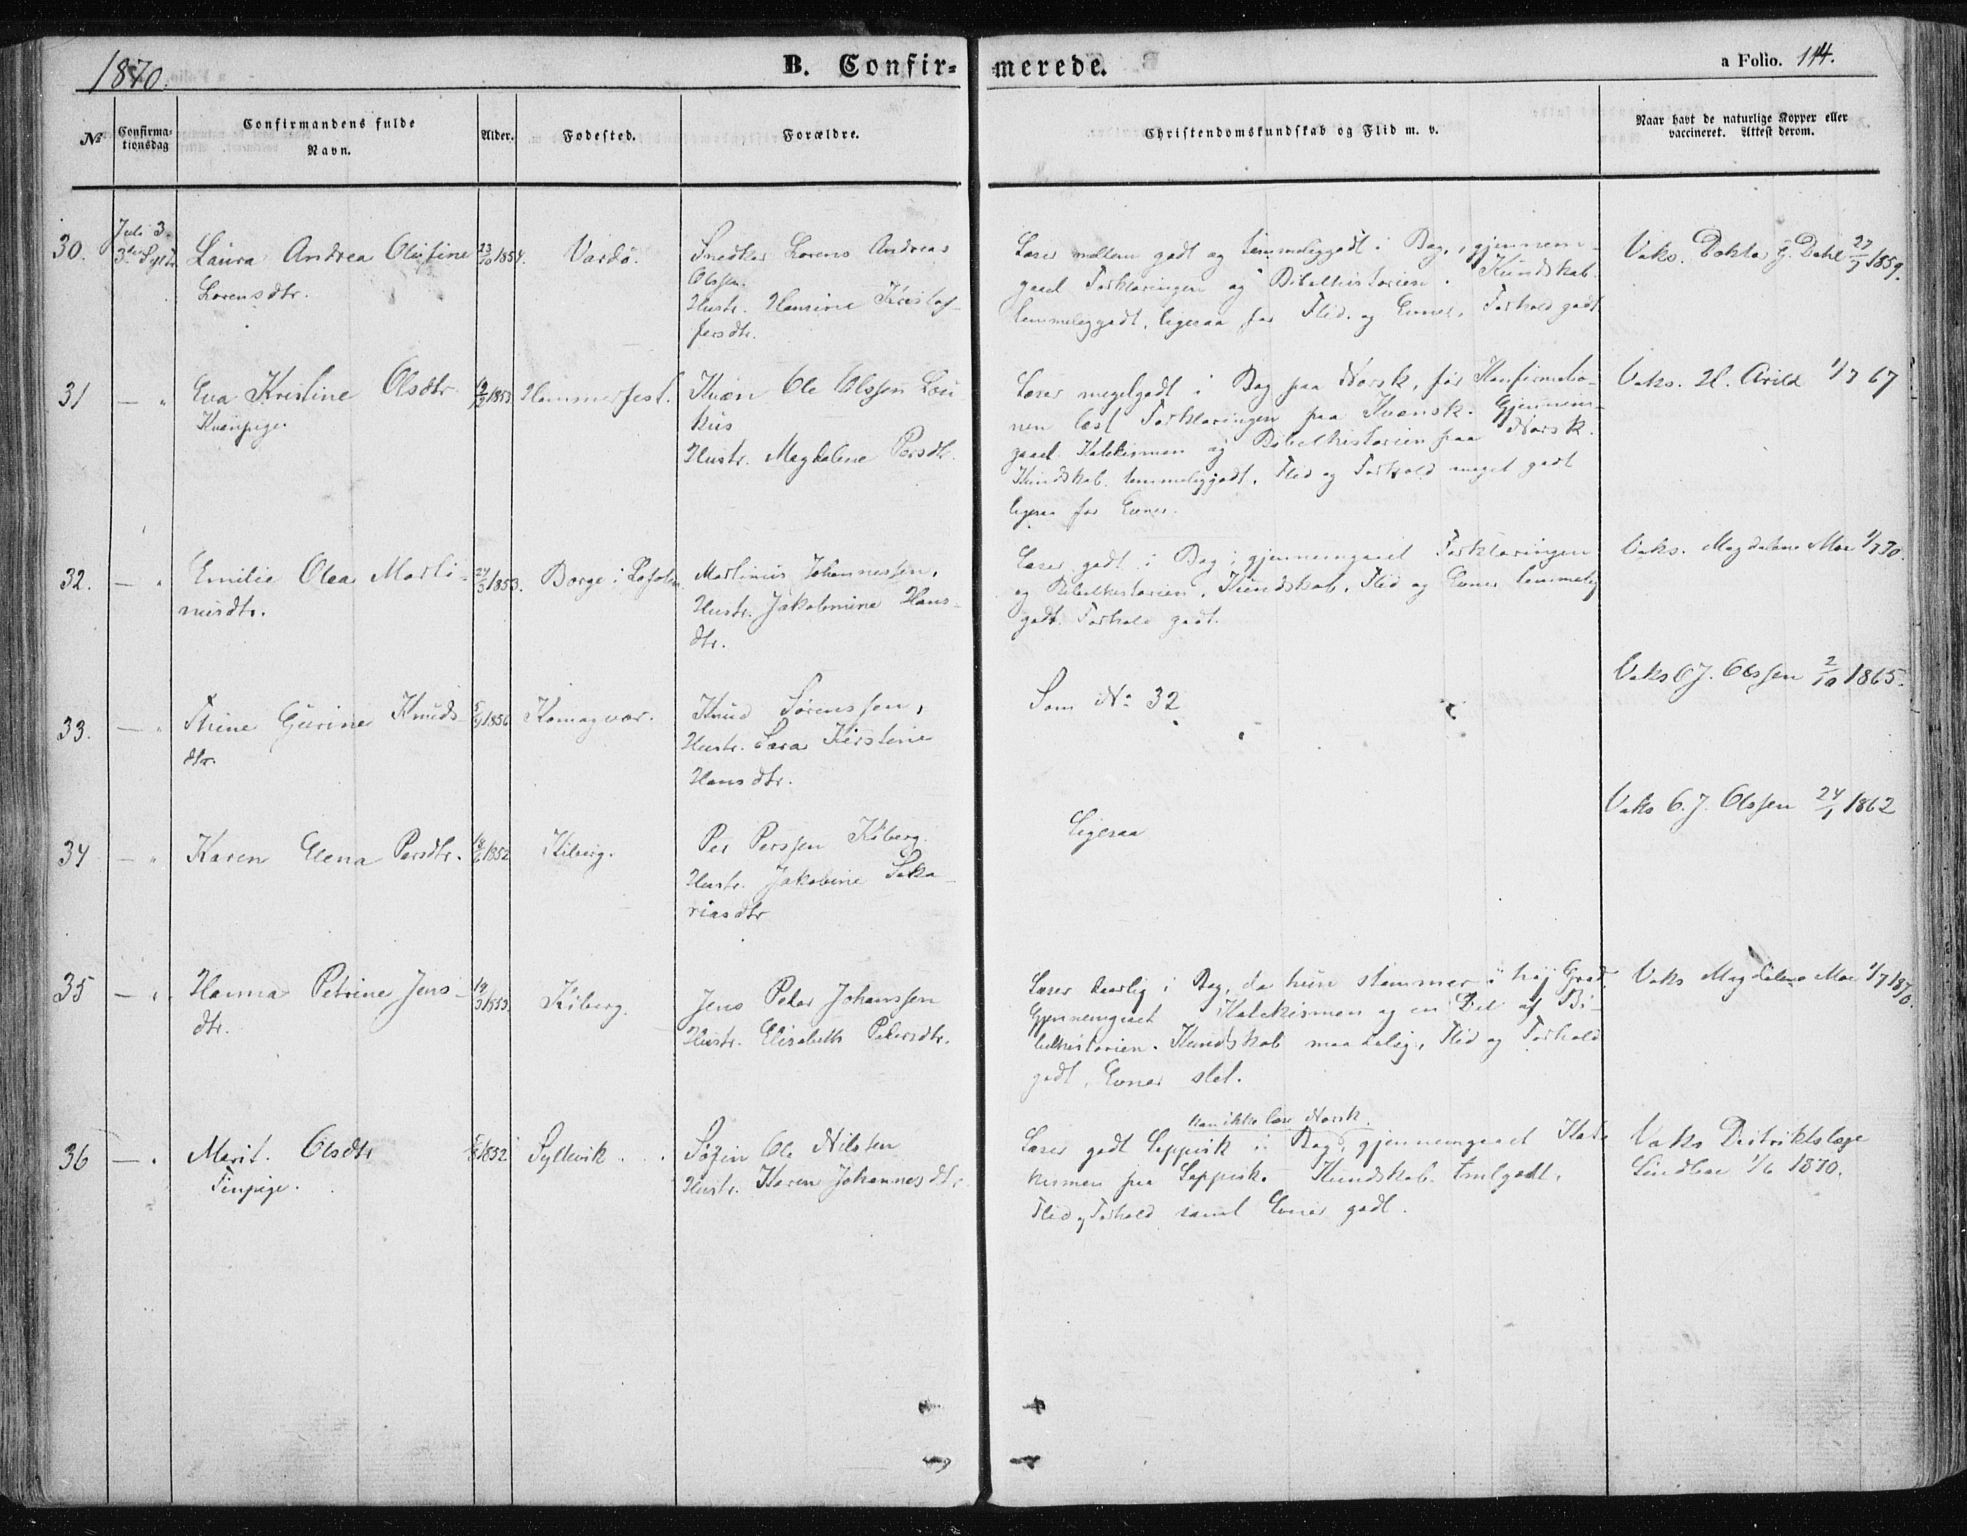 1870.
B. Confirmerede.
a Folio. 114.
No
Confirmationsdag
Confirmandens fulde Navn.
Alder.
Fødested.
Forældre.
Christendomskundskab og Flid m. v.
Naar havt de naturlige Kopper eller vaccineret. Attest derom.
30.
Juli 3.
Laura Andrea Olufine
Lorensdtr.
23/10 1854.
Vardø.
Snedker Lorens Andreas
Olssen.
Hustr. Hansine Kristof-
fersdtr.
Læser mellem godt og temmeliggodt i Bog, gjennem-
gaaet Forklaringen og Bibelhistorien. Kundskab
temmeliggodt, ligesaa for Flid og Evner, Forhold godt
Vaks. Doktor J. Dahl 27/7 1859.
31
Eva Kristine Olsdtr.
Kvænpige.
1853
Hammerfest.
Kvæn Ole Olssen Lou
kus
Hustr. Magdalene Persdtr.
Læser megetgodt i Bog paa Norsk, før Konfirmatio-
nen læst Forklaringen paa Kvænsk. Gjennem-
gaaet Katekismen og Bibelhistorien paa Norsk.
Kundskab temmeliggodt, Flid og Forhold meget godt
ligesaa for Evner.
Vaks. H. Arild 1/7 67
32.
Emilie Olea Marti-
nusdtr.
24/3 1853.
Borge i Lofoten
Martinus Johannessen,
Hustr. Jakobmine Hans-
dtr.
Læser godt i Bog, gjennemgaaet Forklaringen
og Bibelhistorien, Kundskab, Flid og Evner temmelig
godt. Forhold godt.
Vaks. Magdalene Moe 1/7 70
33.
Thine Gurine Knuds
dtr.
1856
Komagvær.
Knud Sørenssen,
Hustr. Sara Kirstine
Hansdtr.
Som No 32
Vaks O J. Olssen 2/10 1865.
34
Karen Elena Persdtr.
1852
Kiberg.
Per Perssen Kiberg.
Hustr. Jakobine Saka-
riasdtr
Ligesaa
Vaks O. J. Olssen 24/1 1862
35
Hanna Petrine Jens-
dtr.
19/3 1853.
Kiberg.
Jens Peter Johanssen
Hustr. Elisabeth Petersdtr.
Læser daarlig i Bog, da hun stammer i høj Grad.
Gjennemgaaet Katekismen og en Del af Bi-
belhistorien. Kundskab maadelig, Flid og Forhold
godt, Evner slet.
Vaks Magdalene Moe 1/7 1870.
36
Marit Olsdtr
Finpige.
1852
Syltevik
Søfin Ole Nilsen
Hustr. Karen Johannesdtr.
kan ikke læse Norsk.
Læser godt Lappisk i Bog, gjennemgaaet Kate
kismen paa Lappisk. Kundskab temlgodt,
Flid og Forhold samt Evner godt.
Vaks Distriktslæge
Lindboe 1/6 1870.